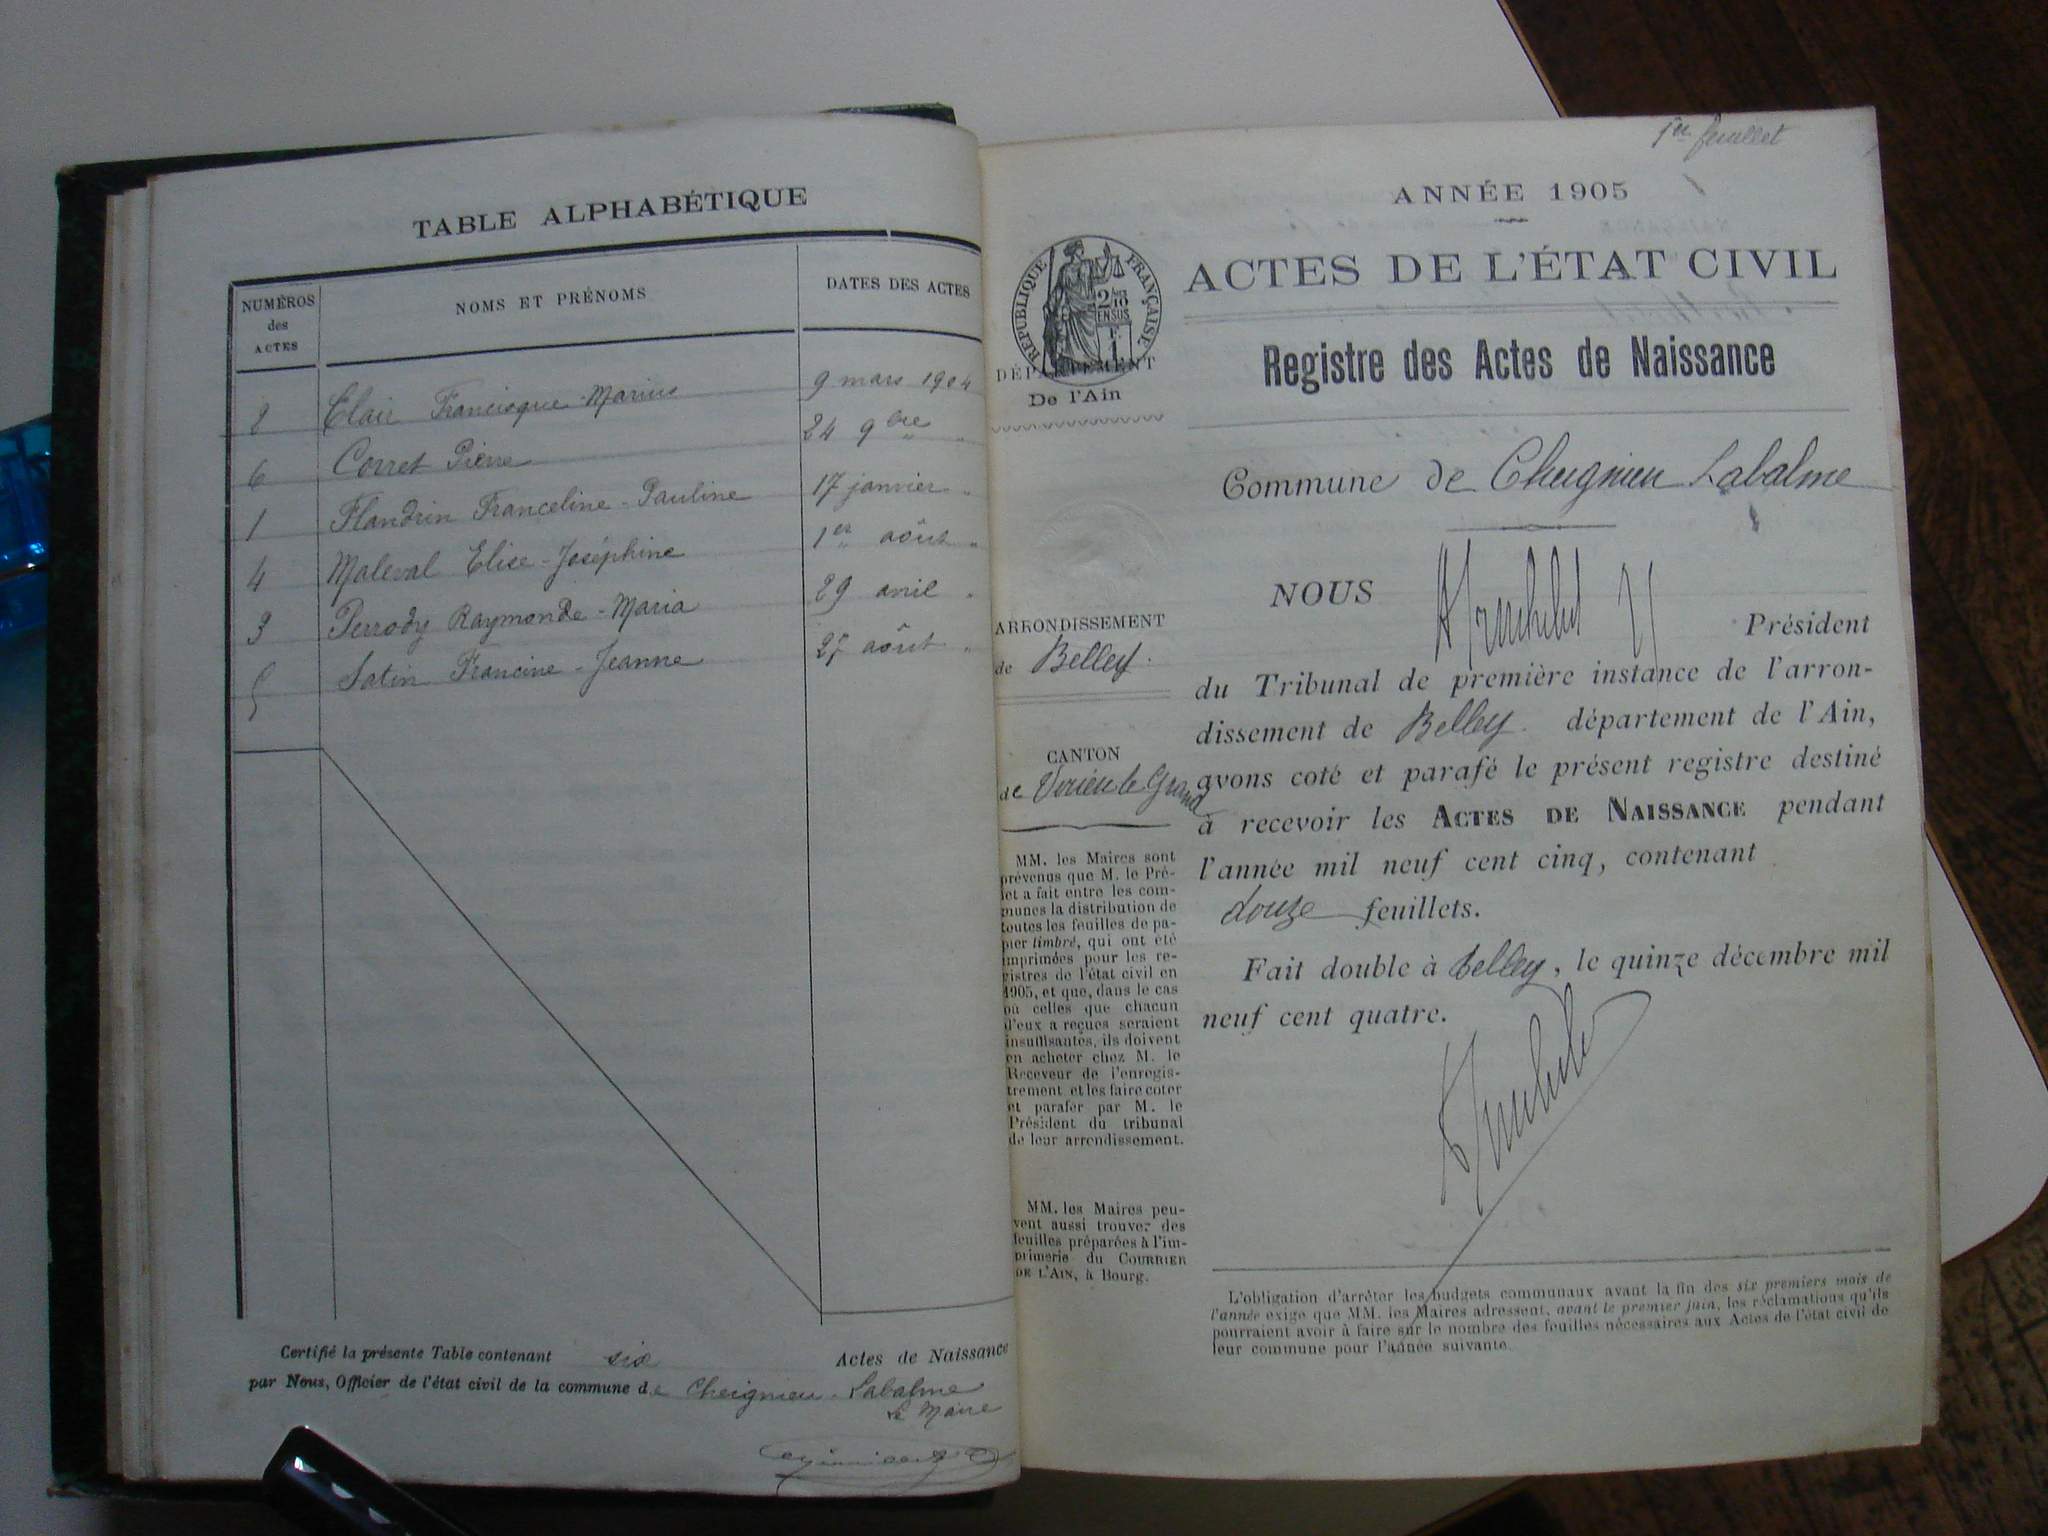 TABLE ALPHABÉTIQUE
NUMÉROS des ACTES NOMS ET PRÉNOMS DATES DES ACTES
2 Clair Francisque-Marius 9 mars 1904
6 Corret Pierre 24 9bre "
1 Flandrin Franceline-Pauline 17 janvier "
4 Maleval Elise-Joséphine 1er août "
3 Perrody Raymonde-Maria 29 avril "
5 Satin Francine-Jeanne 27 août "
Certifié la présente Table contenant six Actes de Naissance
par Nous, Officier de l'état civil de la commune de Cheignieu-Labalme
Le Maire
1er feuillet
ANNÉE 1905
ACTES DE L'ÉTAT CIVIL
Registre des Actes de Naissance
RÉPUBLIQUE FRANÇAISE
DÉPARTEMENT
De l'Ain
Commune de Cheignieu Labalme
NOUS
Président
du Tribunal de première instance de l'arron-
dissement de Belley. département de l'Ain,
avons coté et parafé le présent registre destiné
à recevoir les ACTES DE NAISSANCE pendant
l'année mil neuf cent cinq, contenant
douze feuillets.
Fait double à Belley, le quinze décembre mil
neuf cent quatre.
ARRONDISSEMENT
de Belley.
CANTON
de Virieu le Grand
MM. les Maires sont
prévenus que M. le Pré-
fet a fait entre les com-
munes la distribution de
toutes les feuilles de pa-
pier timbré, qui ont été
imprimées pour les re-
gistres de l'état civil en
1905, et que, dans le cas
où celles que chacun
d'eux a reçues seraient
insuffisantes, ils doivent
en acheter chez M. le
Receveur de l'enregis-
trement et les faire coter
et parafer par M. le
Président du tribunal
de leur arrondissement.
MM. les Maires peu-
vent aussi trouver des
feuilles préparées à l'im-
primerie du COURRIER
DE L'AIN, à Bourg.
L'obligation d'arrêter les budgets communaux avant la fin des six premiers mois de
l'année exige que MM. les Maires adressent, avant le premier juin, les réclamations qu'ils
pourraient avoir à faire sur le nombre des feuilles nécessaires aux Actes de l'état civil de
leur commune pour l'année suivante.